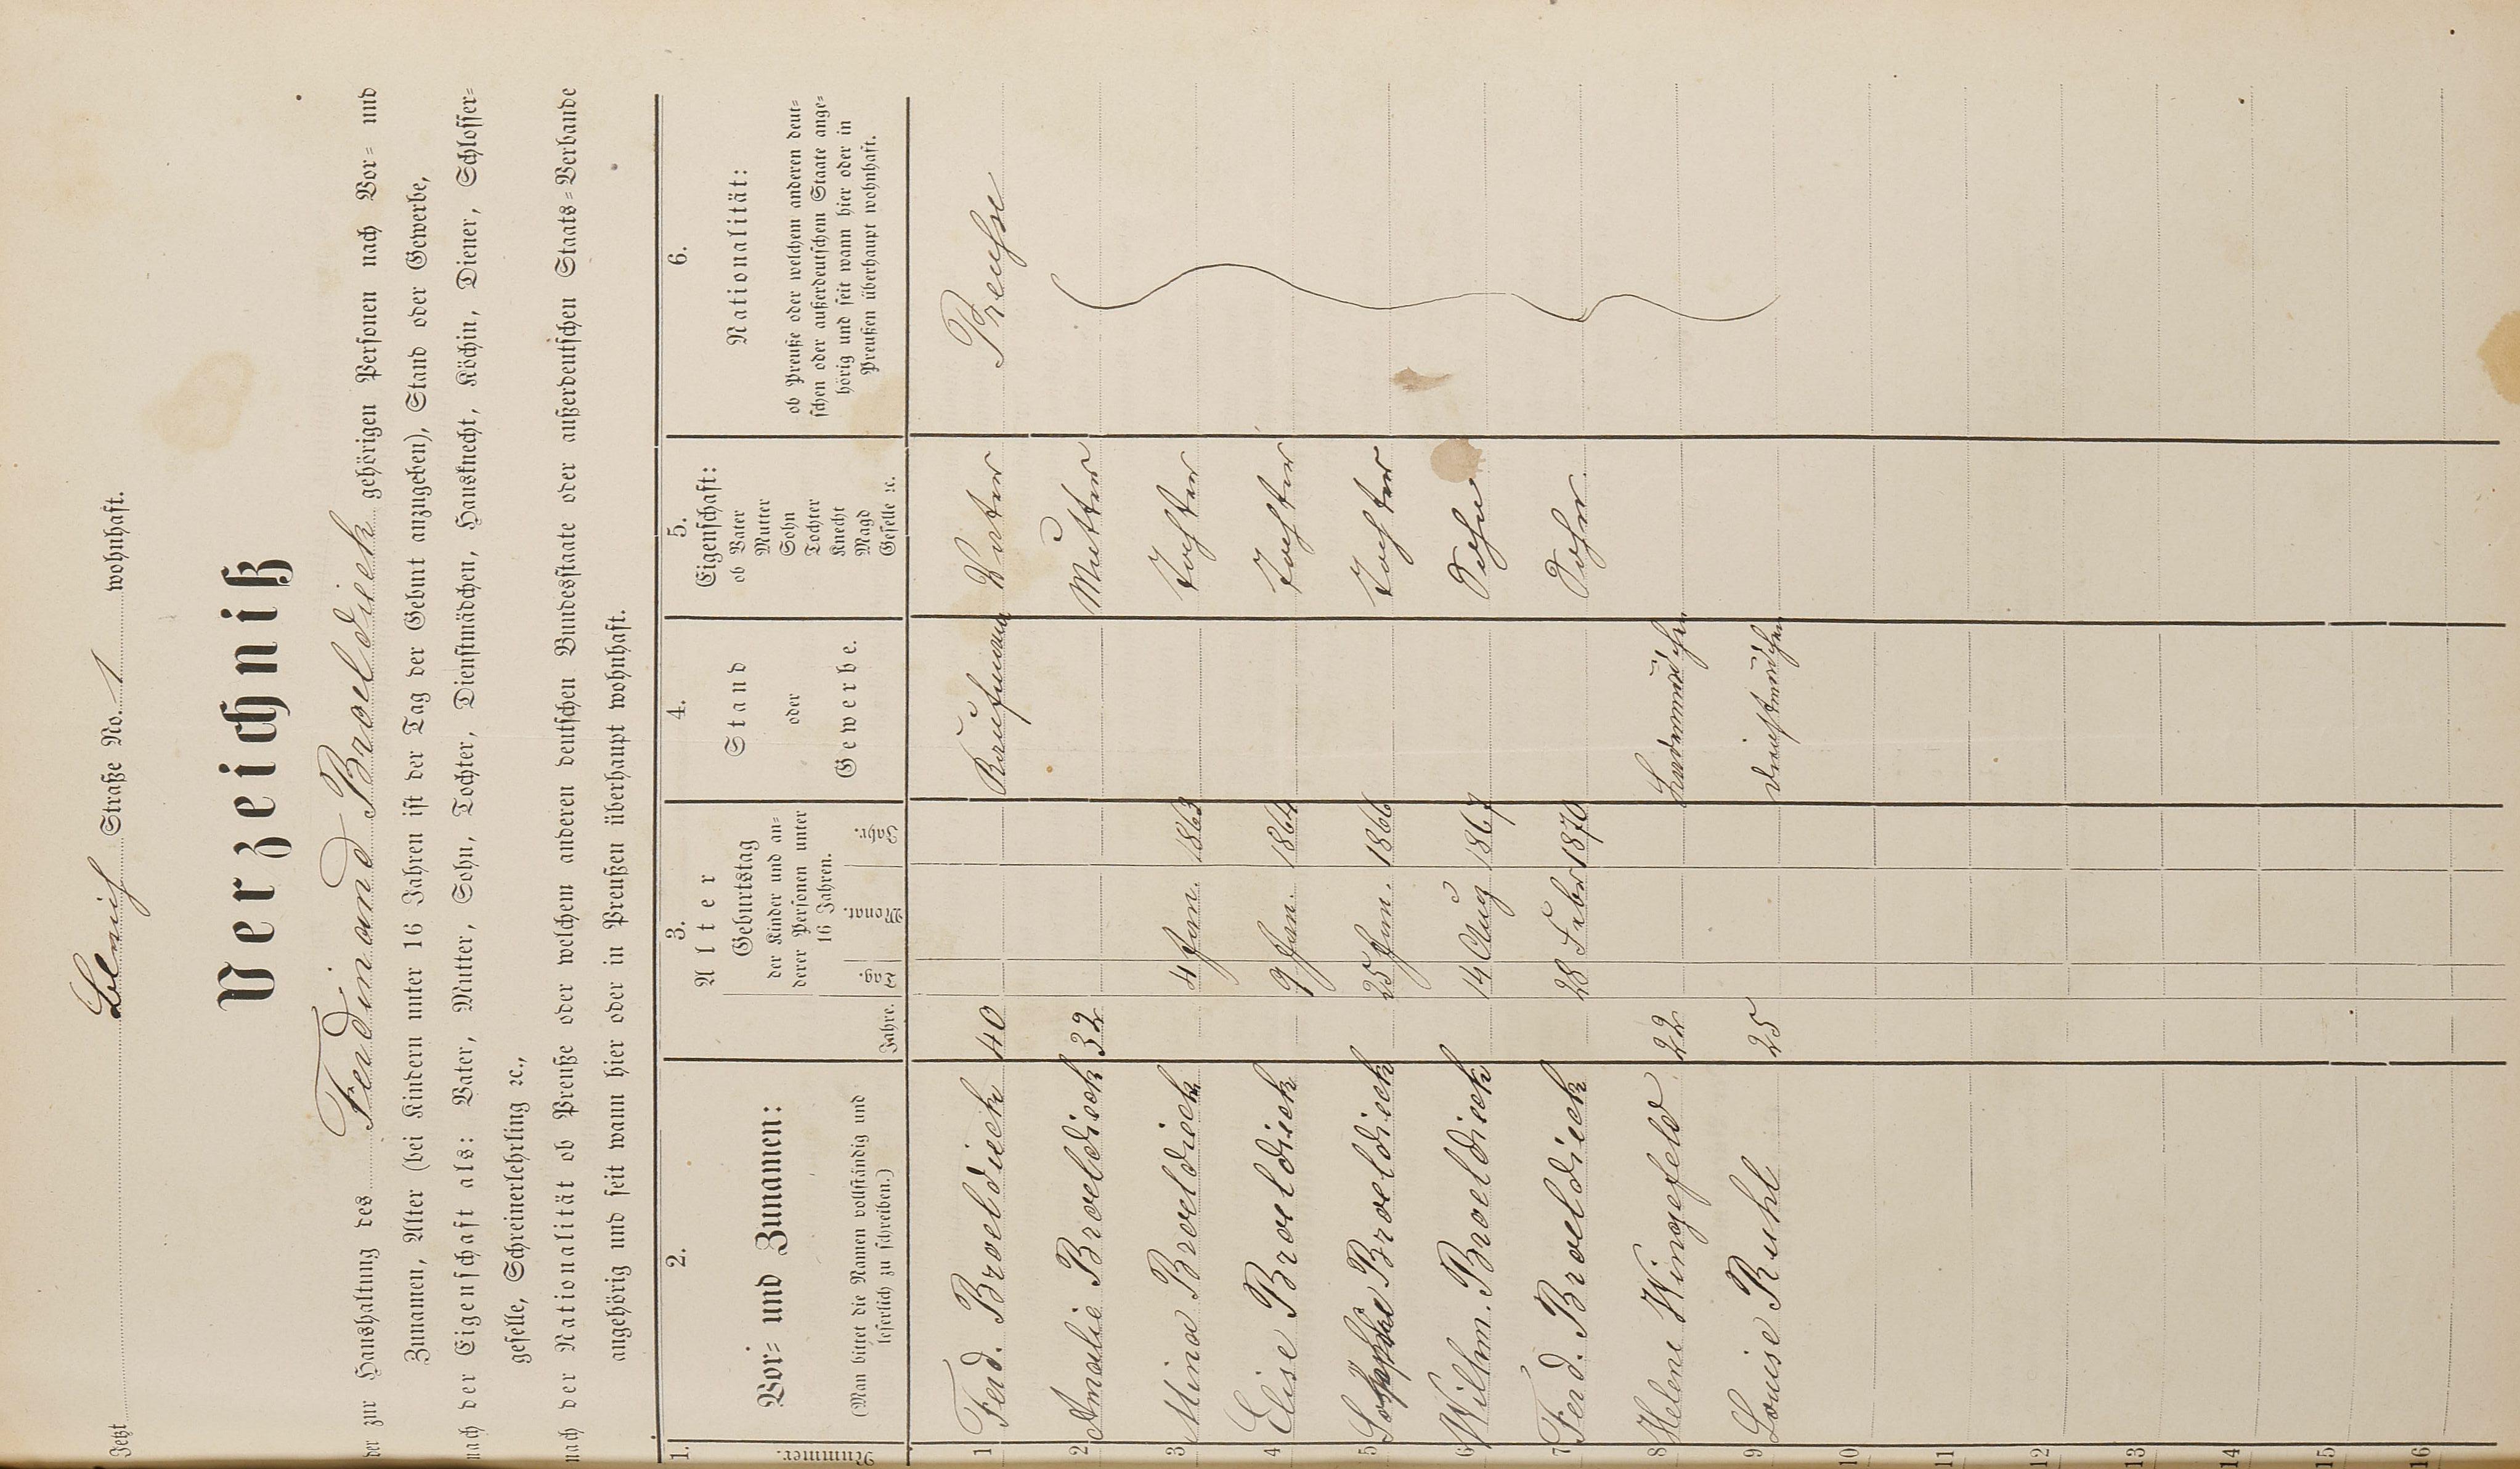 Jetzt Straße No. 1 wohnhaft.
Verzeichniß
der zur Haushaltung des Ferdinand Broeldieck gehörigen Personen nach Vor- und
Zunamen, Alter (bei Kindern unter 16 Jahren ist der Tag der Geburt anzugeben), Stand oder Gewerbe,
nach der Eigenschaft als: Vater, Mutter, Sohn, Tochter, Dienstmädchen, Hausknecht, Köchin, Diener, Schlosser-
geselle, Schreinerlehrling ꝛc.,
nach der Nationalität ob Preuße oder welchem anderen deutschen Bundesstaate oder außerdeutschen Staats-Verbande
angehörig und seit wann hier oder in Preußen überhaupt wohnhaft.
1. 2. 3. 4. 5. 6.
Nummer.
Vor- und Zunamen:
(Man bittet die Namen vollständig und
leserlich zu schreiben.)
Alter
Jahre.
Geburtstag
der Kinder und an-
derer Personen unter
16 Jahren.
Tag. Monat. Jahr.
Stand
oder
Gewerbe.
Eigenschaft:
ob Vater
Mutter
Sohn
Tochter
Knecht
Magd
Geselle ꝛc.
Nationalität:
ob Preuße oder welchem anderen deut-
schen oder außerdeutschem Staate ange-
hörig und seit wann hier oder in
Preußen überhaupt wohnhaft.
1 Ferd. Broeldieck 40 Kaufmann Vater Preusse
2 Amalie Broeldieck 32 Mutter
3 Mina Broeldieck 4 Jan. 1863 Tochter
4 Elise Broeldieck 9 Jan. 1864 Tochter
5 Broeldieck 25 Jan. 1866 Tochter
6 Wilhm. Broeldieck 14 Aug 1867 Sohn
7 Ferd. Broeldieck 28 Febr 1870 Sohn
8 Helene Wingefeld 22 Ladenmädchen
9 Louise Ruhl 25 Dienstmädchen
10
11
12
13
14
15
16